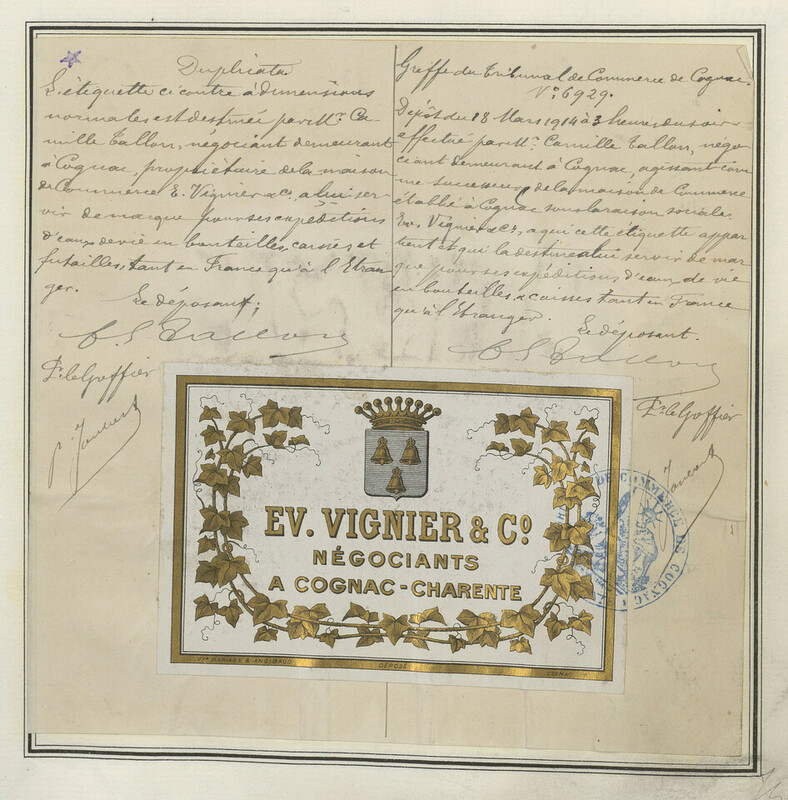 Duplicata
L'étiquette ci contre à dimensions
normales est destinée par Mr. Ca-
mille Tallon, négociant demeurant
à Cognac, propriétaire de la maison
de Commerce E. Vignier & Co, a lui ser-
vir de marque pour ses expéditions
d'eaux de vie en bouteilles, caisses, et
futailles, tant en France qu'à l'Etran-
ger.
Le déposant;
Pr. le Greffier
Greffe du Tribunal de Commerce de Cognac.
No. 6929.
Dépôt du 18 Mars 1914 à 3 heures du soir
effectué par Mr. Camille Tallon, négo-
ciant demeurant à Cognac, agissant com-
me successeur de la maison de Commerce
établie à Cognac sous la raison sociale.
Ev. Vignier & Co, a qui cette étiquette appar-
tient et qui la destine a lui servir de mar-
que pour ses expéditions d'eaux de vie
en bouteilles & caisses tant en France
qu'à l'Etranger.
Le déposant.
Pr. le Greffier
EV. VIGNIER & Co.
NÉGOCIANTS
A COGNAC - CHARENTE
Vve MARIAGE & ANGIBAUD DÉPOSÉ COGNAC
DE COMMERCE DE COGNAC